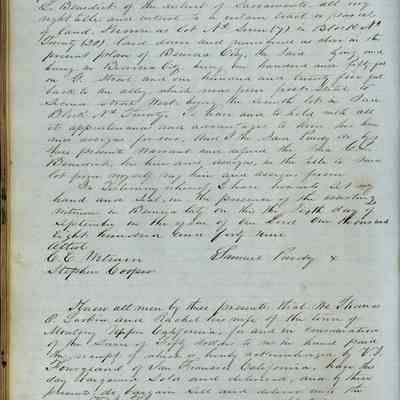 L. Benedict of the District of Sacramento all my
right title and interest to a certain tract or parcel
of land known as Lot No Seven (7) in Block No
Twenty (20) laid down and numbered as above in the
present plan of Benicia City, the same lying and
being in Benicia City being one hundred and fifty feet
on H. Street and one hundred and twenty five feet
back to an alley, which runs from first Street to
Second Street West being the seventh lot in said
Block No Twenty. To have and to hold with all
its appurtenances and advantages to him his heirs
and assigns forever, And I the said Purdy do by
these presents Warrant and defend the said C. L.
Benedict his heirs and assigns, in the title to said
lot from myself my heirs and assigns forever
In Testimony whereof I have hereunto set my
hand and seal, in the presence of the
witnesses in Benicia City on this the day of
September in the year of our Lord One thousand
Eight hundred and forty nine
Attest
C. E. Wetmore Samuel Purdy
Stephen Cooper
Know all men by these presents, that We Thomas
O. Larkin and Rachel his wife of the town of
Monterey Upper California, for and in consideration
of the Sum of Fifty dollars to us in hand paid
the receipt of which is hereby acknowledged by
of San Francisco California, have this
day bargained Sold and delivered, and by these
presents do bargain Sell and deliver unto the